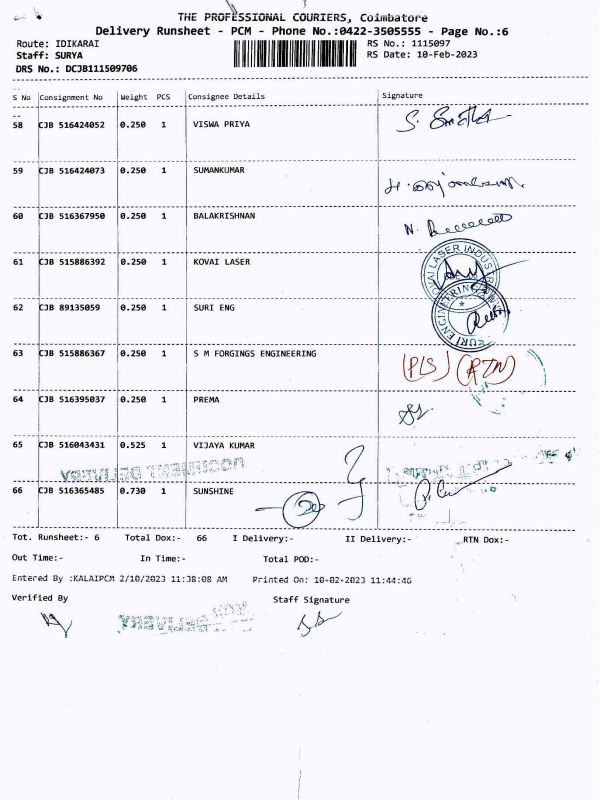 THE PROFESSIONAL COURIERS, Coimbatore
Delivery Runsheet - PCM - Phone No.:0422-3505555 - Page No.:6
Route: IDIKARAI
RS No.: 1115097
Staff: SURYA
RS Date: 10-Feb-2023
DRS No.: DCJB111509706
S No Consignment No Weight PCS Consignee Details Signature
58 CJB 516424052 0.250 1 VISWA PRIYA
59 CJB 516424073 0.250 1 SUMANKUMAR
60 CJB 516367950 0.250 1 BALAKRISHNAN
61 CJB 515886392 0.250 1 KOVAI LASER
KOVAI LASER INDUS
62 CJB 89135059 0.250 1 SURI ENG
SURI ENGINEERING
63 CJB 515886367 0.250 1 S M FORGINGS ENGINEERING (PLS) (RTN)
64 CJB 516395037 0.250 1 PREMA
65 CJB 516043431 0.525 1 VIJAYA KUMAR
66 CJB 516365485 0.730 1 SUNSHINE
Tot. Runsheet:- 6 Total Dox:- 66 I Delivery:- II Delivery:- RTN Dox:-
Out Time:- In Time:- Total POD:-
Entered By :KALAIPCM 2/10/2023 11:38:08 AM Printed On: 10-02-2023 11:44:46
Verified By Staff Signature